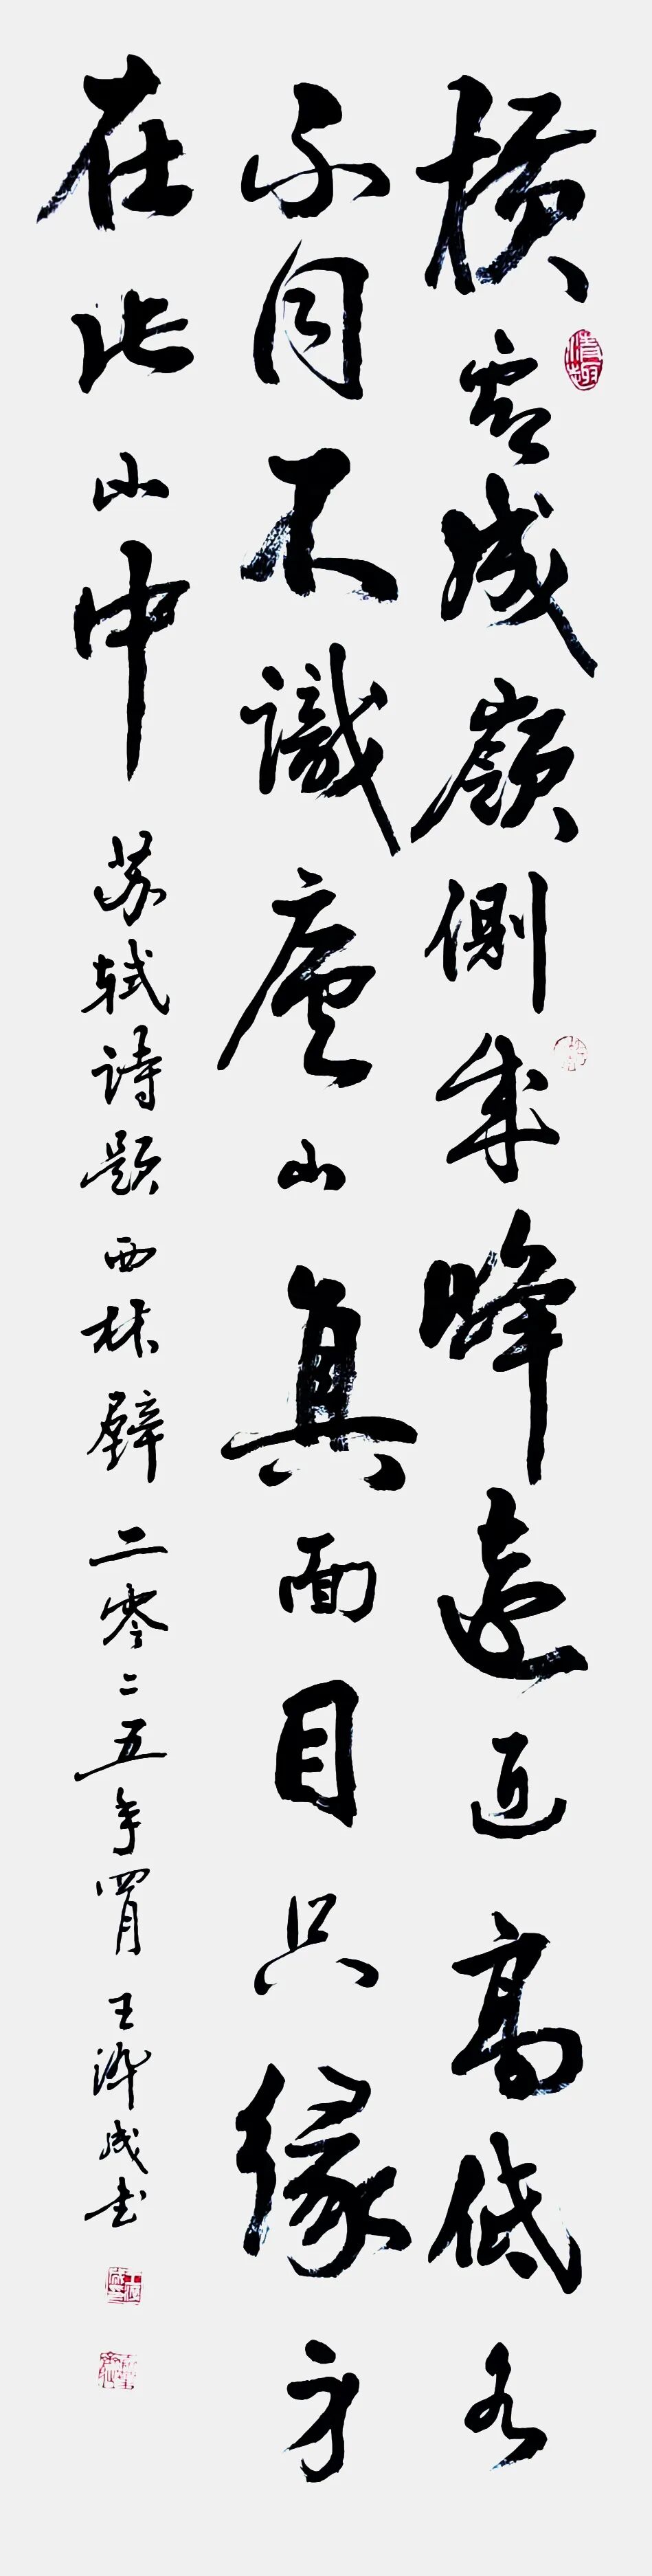 横看成嶺側成峰遠近高低各
情趣
不同不識廬山真面目只緣身
在此山中 苏轼诗题西林壁 二零二五年四月 王成书